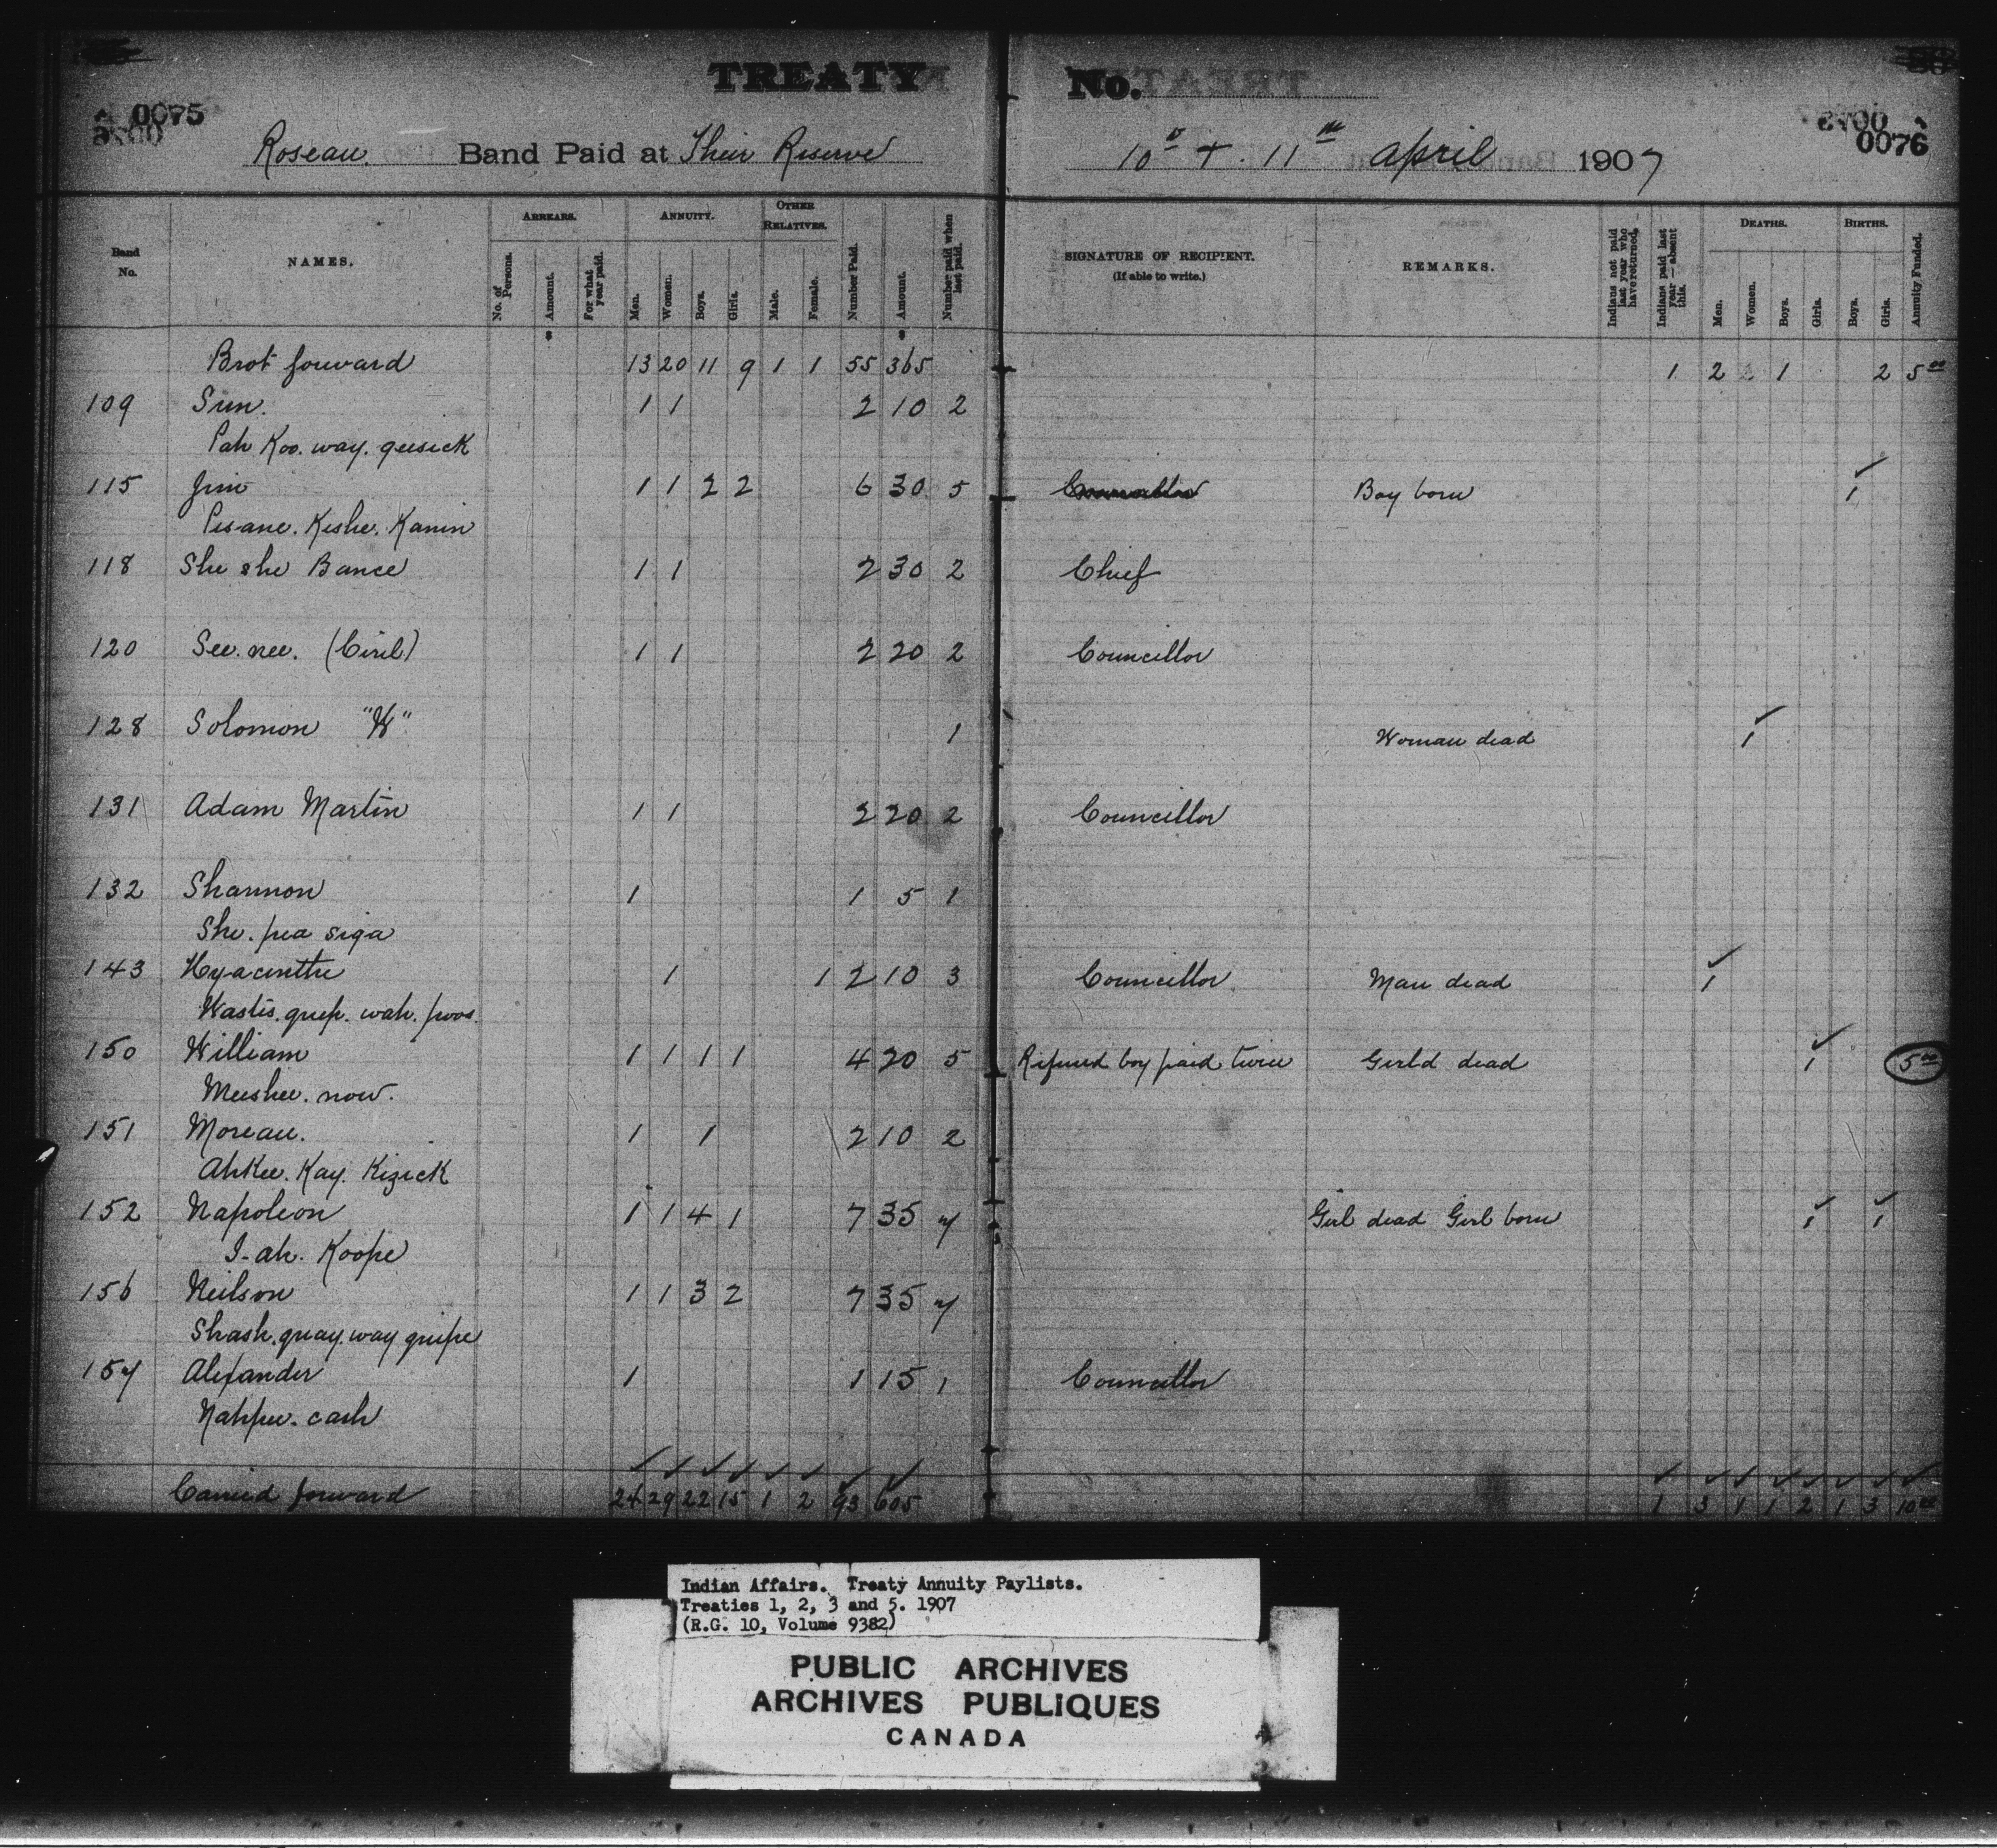 TREATY No.
0075
0076
Roseau Band Paid at Their Reserve 10th + 11th April 1907
Band No.
NAMES.
ARREARS.
No. of Persons.
Amount.
For what year paid.
ANNUITY.
Men.
Women.
Boys.
Girls.
OTHER RELATIVES.
Male.
Female.
Number Paid.
Amount.
Number paid when last paid.
SIGNATURE OF RECIPIENT.
(If able to write.)
REMARKS.
Indians not paid last year who have returned.
Indians paid last year — absent this.
DEATHS.
Men.
Women.
Boys.
Girls.
BIRTHS.
Boys.
Girls.
Annuity Funded.
Brot forward 13 20 11 9 1 1 55 365 1 2 2 1 2 5 00
109 Sun. 1 1 2 10 2
Pah Koo. way. geesick
115 Jim 1 1 2 2 6 30 5 Councillor Boy born 1
Pis-ane. Kishe. Kanin
118 She she Bance 1 1 2 30 2 Chief
120 See. nee. (Ciril) 1 1 2 20 2 Councillor
128 Solomon "W" 1 Woman dead 1
131 Adam Martin 1 1 2 20 2 Councillor
132 Shannon 1 1 5 1
She. pea siga
143 Hyacinthe 1 1 2 10 3 Councillor Man dead 1
Wastis. guep. wah. poos.
150 William 1 1 1 1 4 20 5 Refund boy paid twice Girld dead 1 5 00
Meeshee. now.
151 Moreau. 1 1 2 10 2
Ahkee. Kay. Kizick
152 Napoleon 1 1 4 1 7 35 7 Girl dead Girl born 1 1
I-ah. Koope
156 Neilson 1 1 3 2 7 35 7
Shash. quay. way guipe
157 Alexander 1 1 15 1 Councillor
Nahpee. cash
Carried forward 24 29 22 15 1 2 93 605 1 3 1 1 2 1 3 10 00
Indian Affairs. Treaty Annuity Paylists.
Treaties 1, 2, 3 and 5. 1907
(R.G. 10, Volume 9382)
PUBLIC ARCHIVES
ARCHIVES PUBLIQUES
CANADA